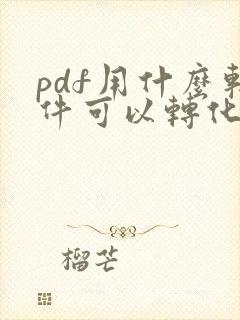 pdf用什麼軟
件可以轉化
榴芒